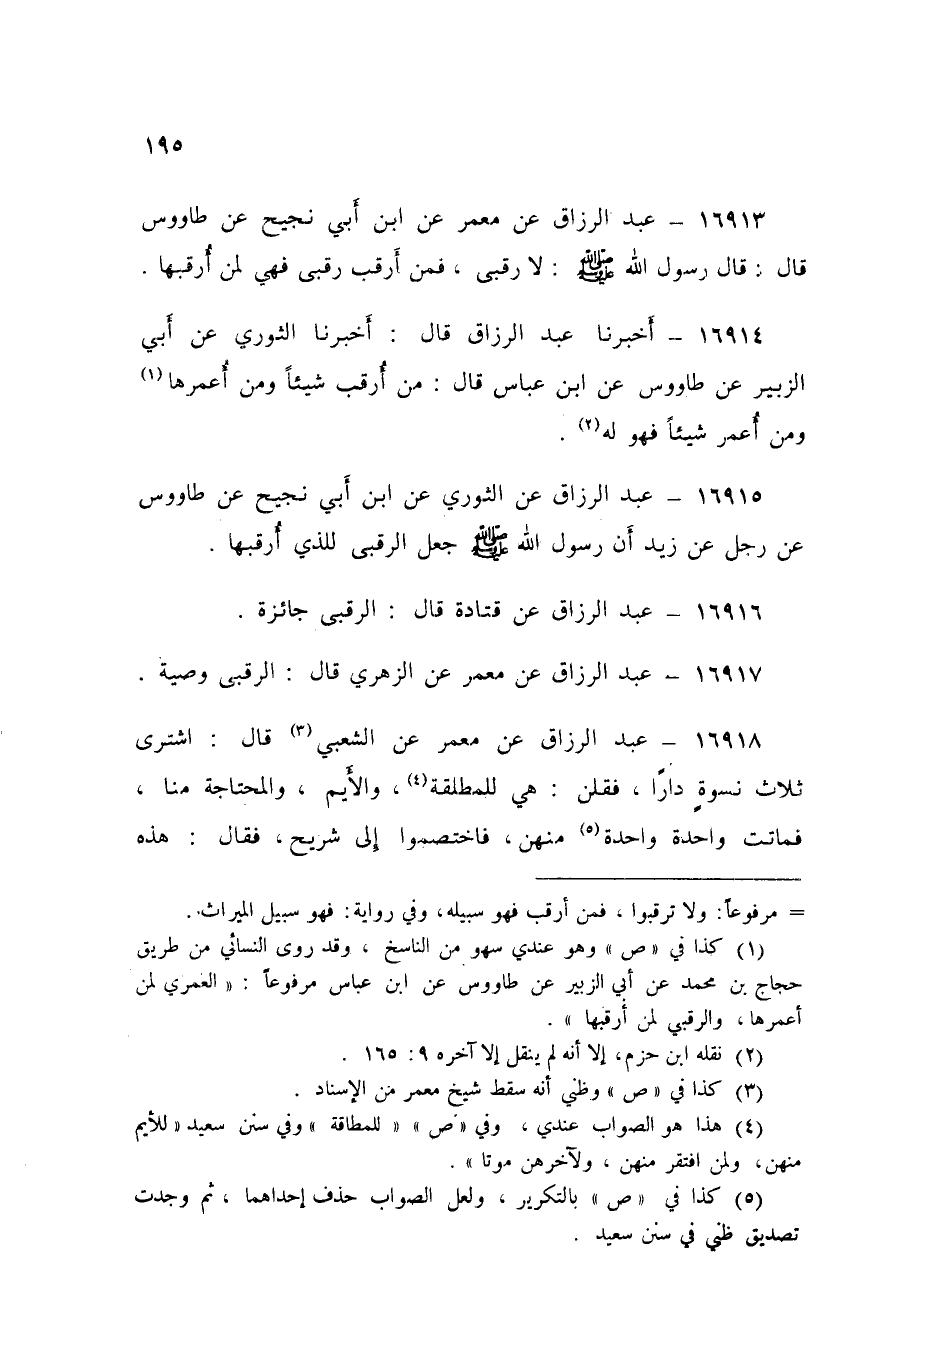 ١٩٥
١٦٩١٣ – عبد الرزاق عن معمر عن ابن أبي نجيح عن طاووس
قال : قال رسول الله ﷺ : لا رقبى ، فمن أرقب رقبى فهي لمن أُرقبها .
١٦٩١٤ – أخبرنا عبد الرزاق قال : أخبرنا الثوري عن أبي
الزبير عن طاووس عن ابن عباس قال : من أُرقب شيئاً ومن أُعمرها (١)
ومن أُعمر شيئاً فهو له (٢) .
١٦٩١٥ – عبد الرزاق عن الثوري عن ابن أبي نجيح عن طاووس
عن رجل عن زيد أن رسول الله ﷺ جعل الرقبى للذي أُرقبها .
١٦٩١٦ – عبد الرزاق عن قتادة قال : الرقبى جائزة .
١٦٩١٧ – عبد الرزاق عن معمر عن الزهري قال : الرقبى وصية .
١٦٩١٨ – عبد الرزاق عن معمر عن الشعبي (٣) قال : اشترى
ثلاث نسوةٍ دارًا ، فقلن : هي للمطلقة (٤) ، والأَيم ، والمحتاجة منا ،
فماتت واحدة واحدة (٥) منهن ، فاختصموا إلى شريح ، فقال : هذه
= مرفوعاً : ولا ترقبوا ، فمن أرقب فهو سبيله ، وفي رواية : فهو سبيل الميراث .
(١) كذا في « ص » وهو عندي سهو من الناسخ ، وقد روى النسائي من طريق
حجاج بن محمد عن أبي الزبير عن طاووس عن ابن عباس مرفوعاً : « العمري لمن
أعمرها ، والرقبي لمن أرقبها » .
(٢) نقله ابن حزم ، إلا أنه لم ينقل إلا آخره ٩ : ١٦٥ .
(٣) كذا في « ص » وظني أنه سقط شيخ معمر من الإسناد .
(٤) هذا هو الصواب عندي ، وفي « ص » « للمطاقة » وفي سنن سعيد « للأيم
منهن ، ولمن افتقر منهن ، ولآخرهن موتا » .
(٥) كذا في « ص » بالتكرير ، ولعل الصواب حذف إحداهما ، ثم وجدت
تصديق ظني في سنن سعيد .